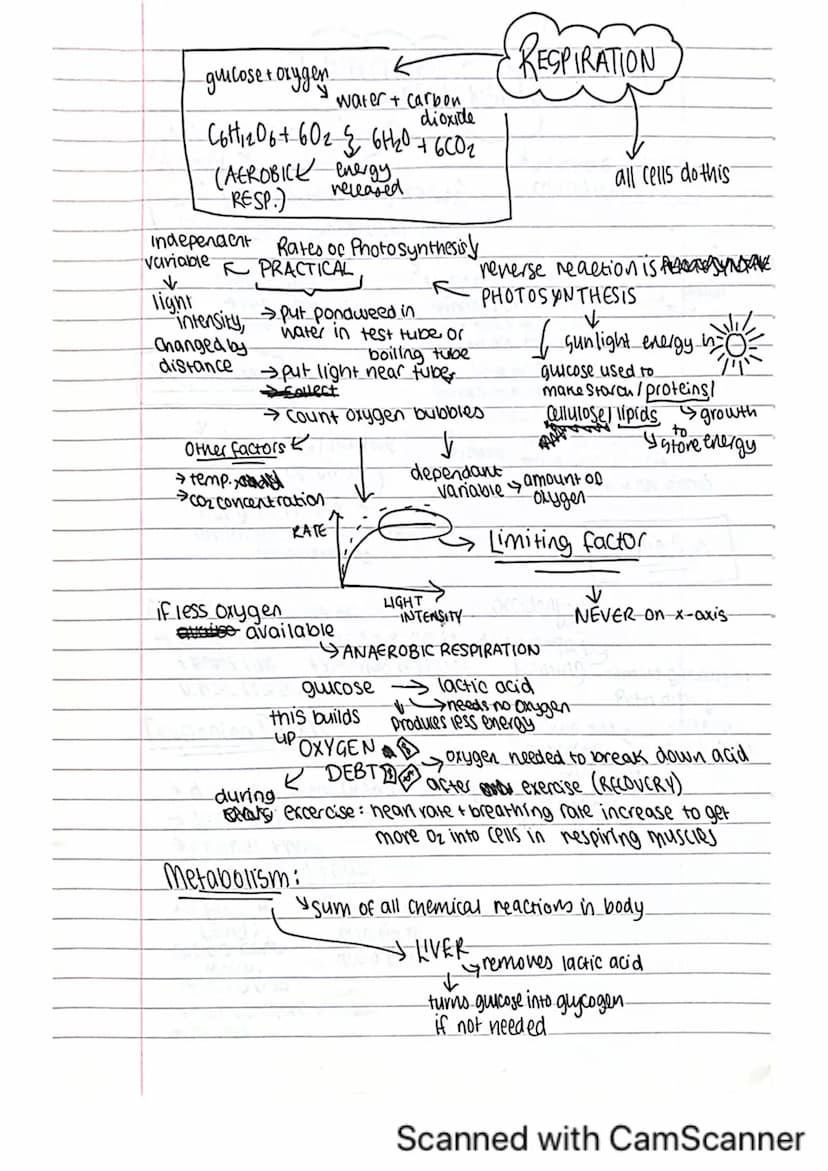 RESPIRATION
glucose + oxygen
water + carbon
dioxide
C6H12O6 + 6O2 6H2O + 6CO2
(AEROBICK energy
RESP.) released
all cells do this
independent
variable
light
intensity,
changed by
distance
Rates of Photosynthesis
PRACTICAL
→ put pondweed in
water in test tube or
boiling tube
→ put light near tube
→ collect
→ count oxygen bubbles
reverse reaction is
PHOTOSYNTHESIS
sunlight energy in
glucose used to
make starch / proteins /
cellulose / lipids → growth
to
store energy
Other factors
→ temp.
→ CO2 concentration
dependant
variable → amount of
oxygen
RATE
LIGHT
INTENSITY
Limiting factor
NEVER on x-axis
if less oxygen
available
ANAEROBIC RESPIRATION
glucose → lactic acid
→ needs no oxygen
produces less energy
this builds
up OXYGEN
DEBT
→ oxygen needed to break down acid
after exercise (RECOVERY)
during
excercise: heart rate + breathing rate increase to get
more O2 into cells in respiring muscles
Metabolism:
sum of all chemical reactions in body
→ LIVER
removes lactic acid
turns glucose into glycogen
if not needed
Scanned with CamScanner